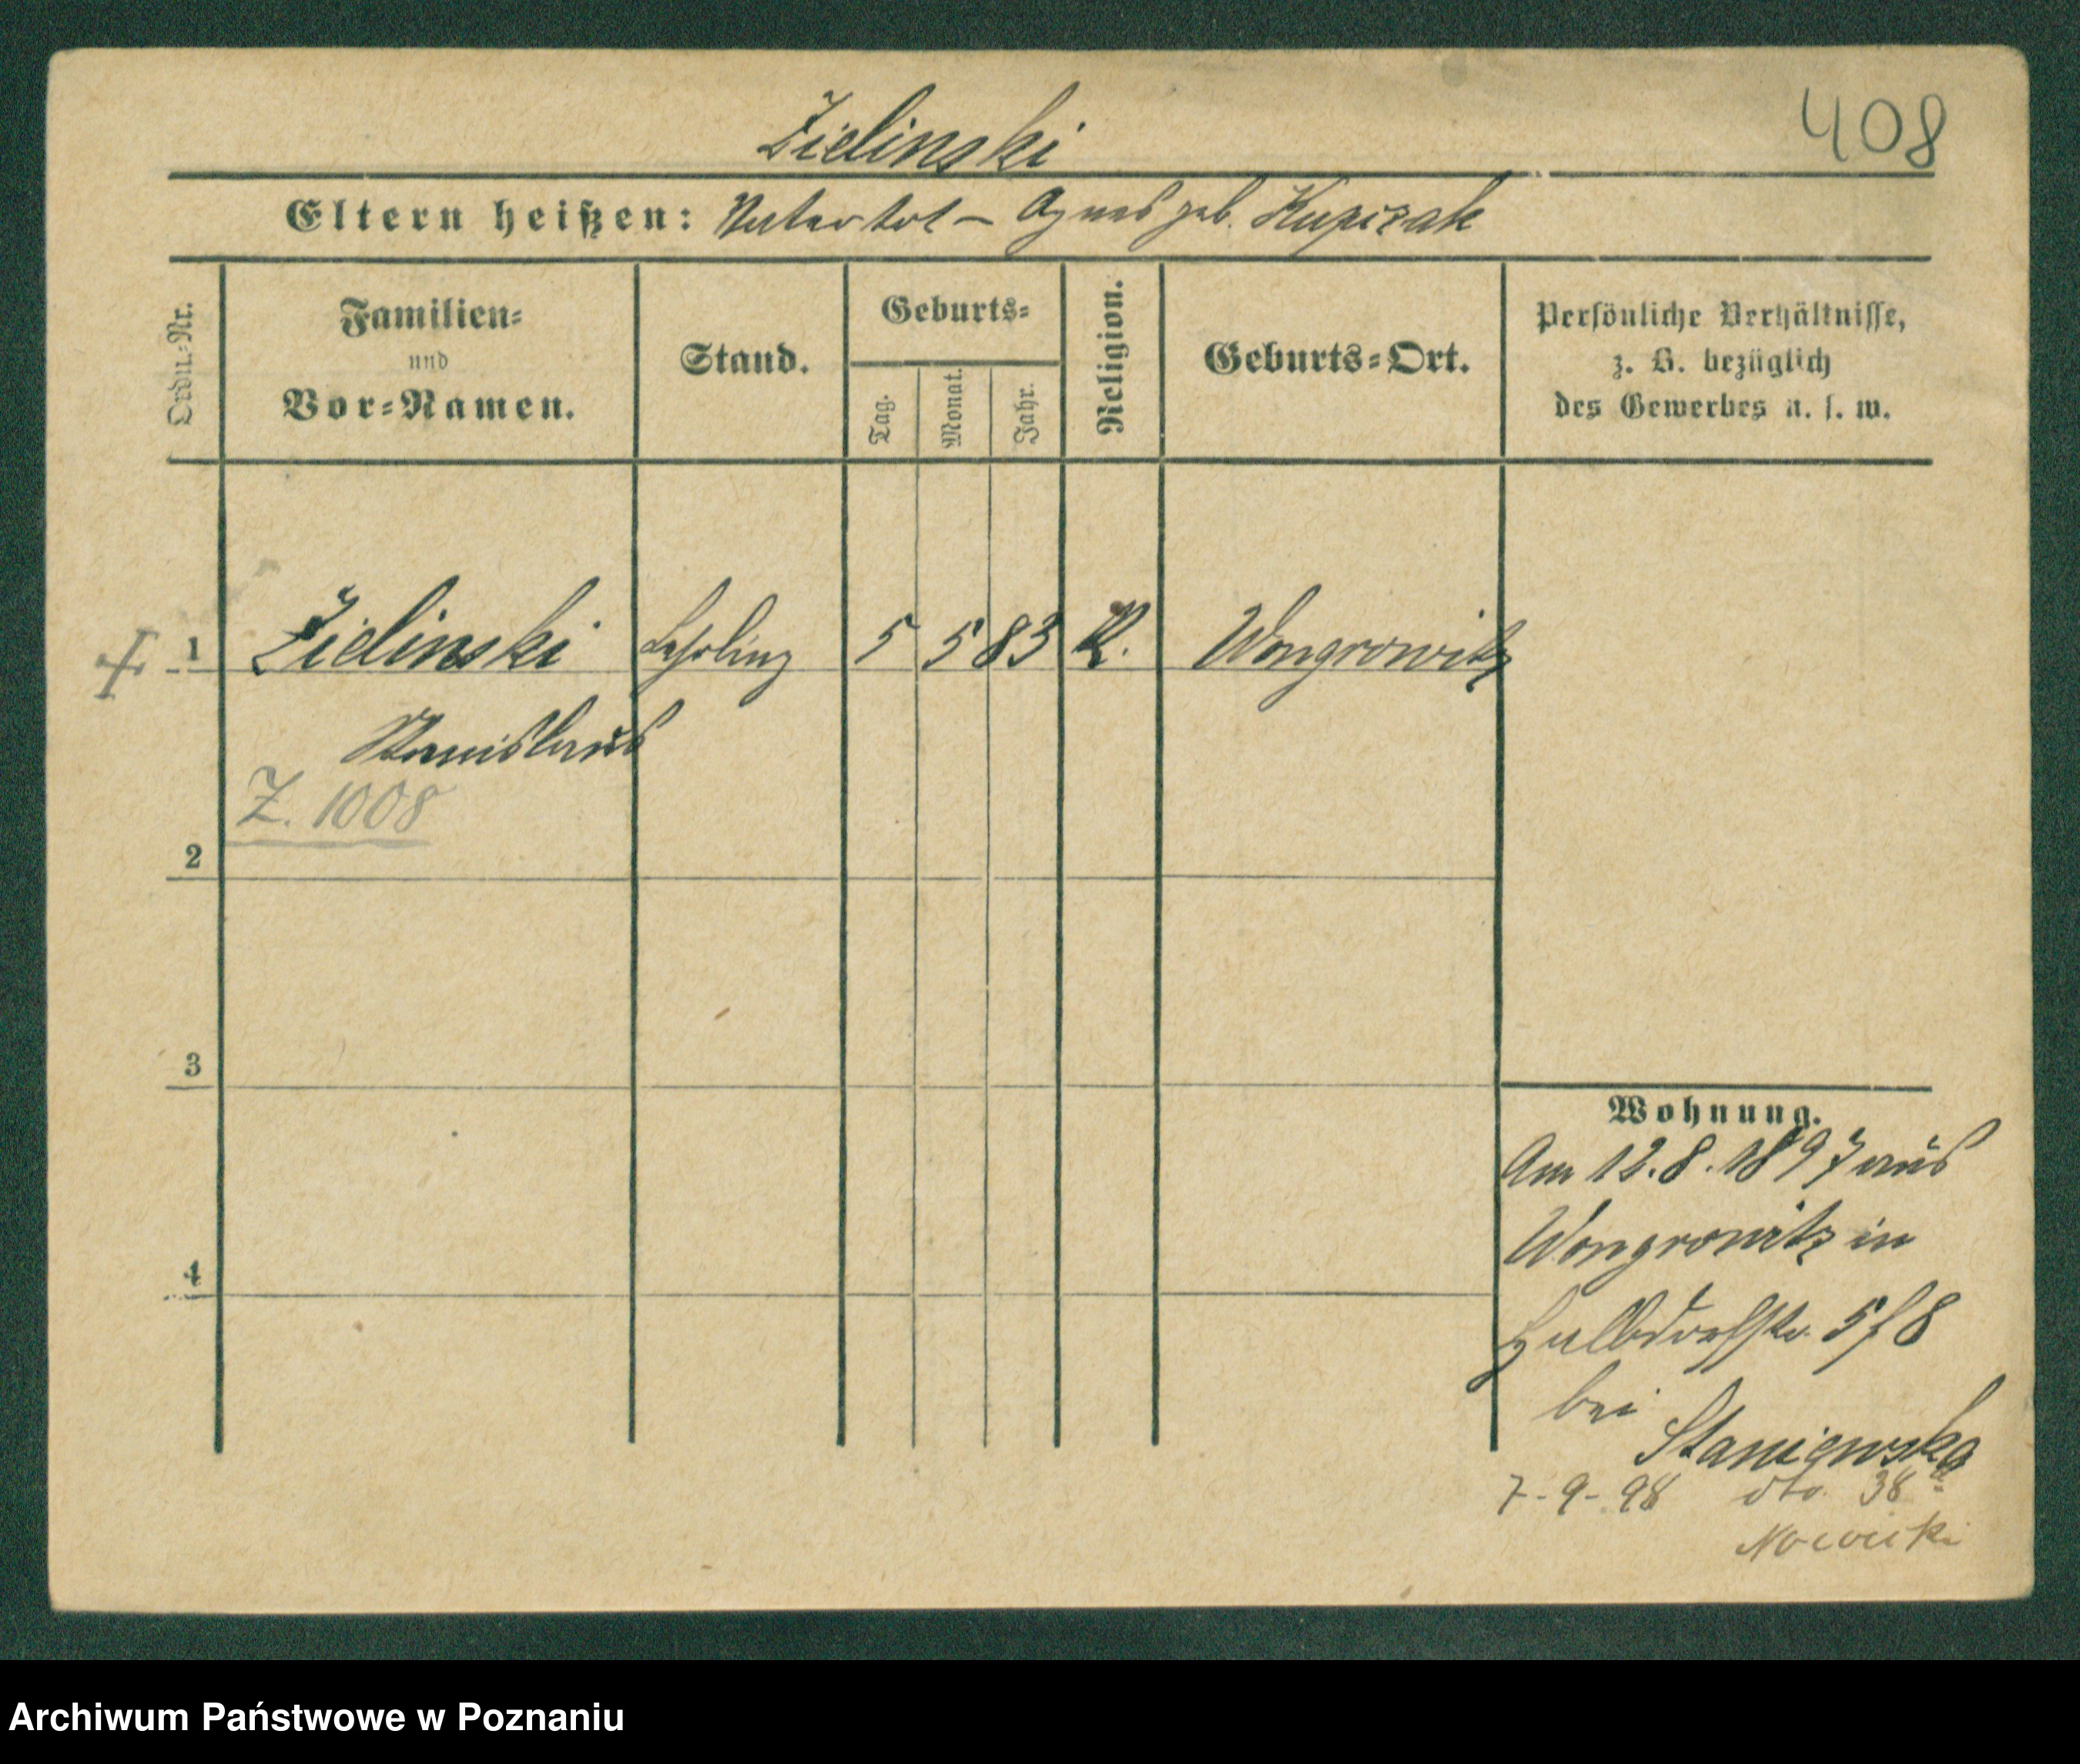 Zielinski
408
Eltern heißen: Vater tot – Agnes geb. Kupczak
Ordn.=Nr.
Familien=
und
Vor=Namen.
Stand.
Geburts=
Tag.
Monat.
Jahr.
Religion.
Geburts=Ort.
Persönliche Verhältnisse,
z. B. bezüglich
des Gewerbes u. s. w.
1 Zielinski Lehrling 5 5 83 K. Wongrowitz
Stanislaus
Z. 1008
2
3
4
Wohnung.
Am 12.8.1897 aus
Wongrowitz in
Halbdorfstr. 5/8
bei
Staniewska
7-9-98 dto. 38
Nowicki
Archiwum Państwowe w Poznaniu